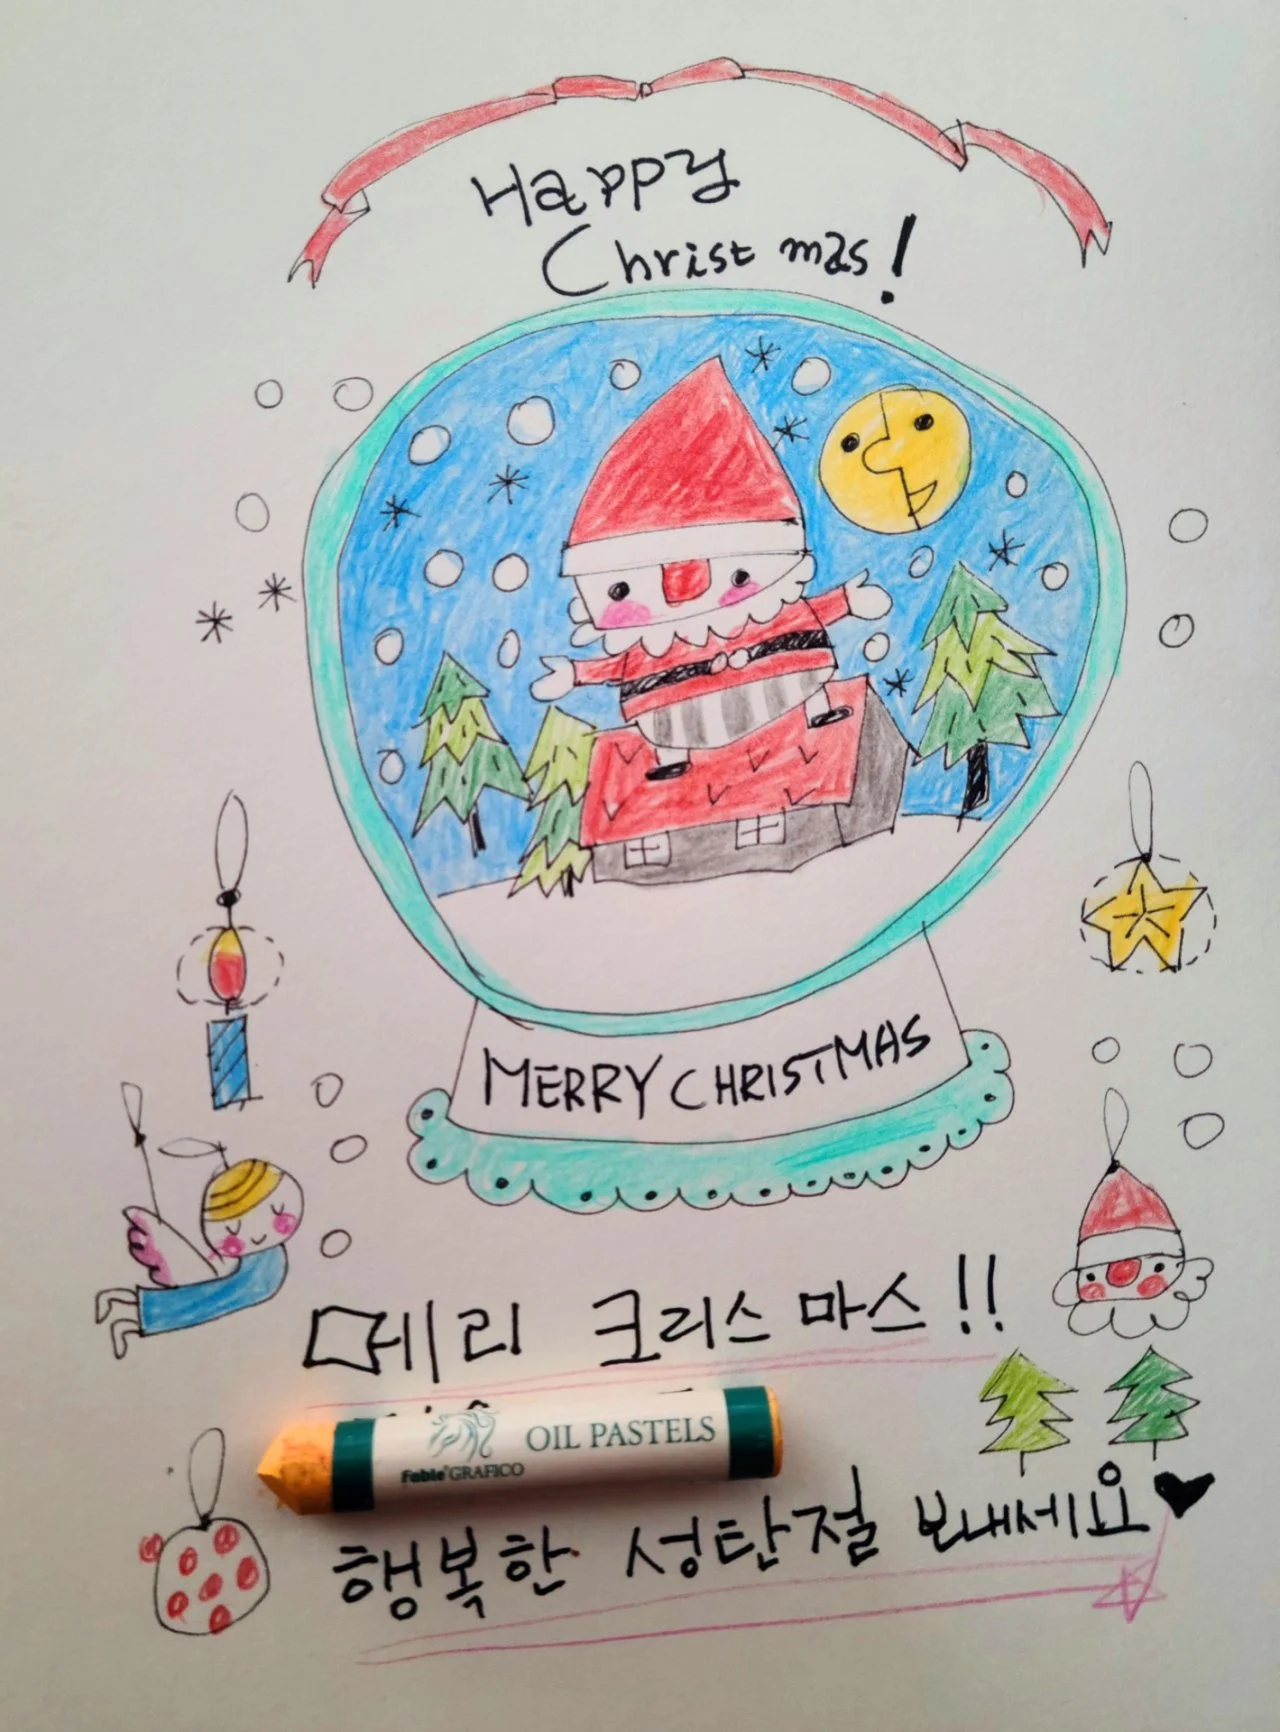 Happy
Christmas!
MERRY CHRISTMAS
메리 크리스마스!!
OIL PASTELS
Fable GRAFICO
행복한 성탄절 보내세요♥